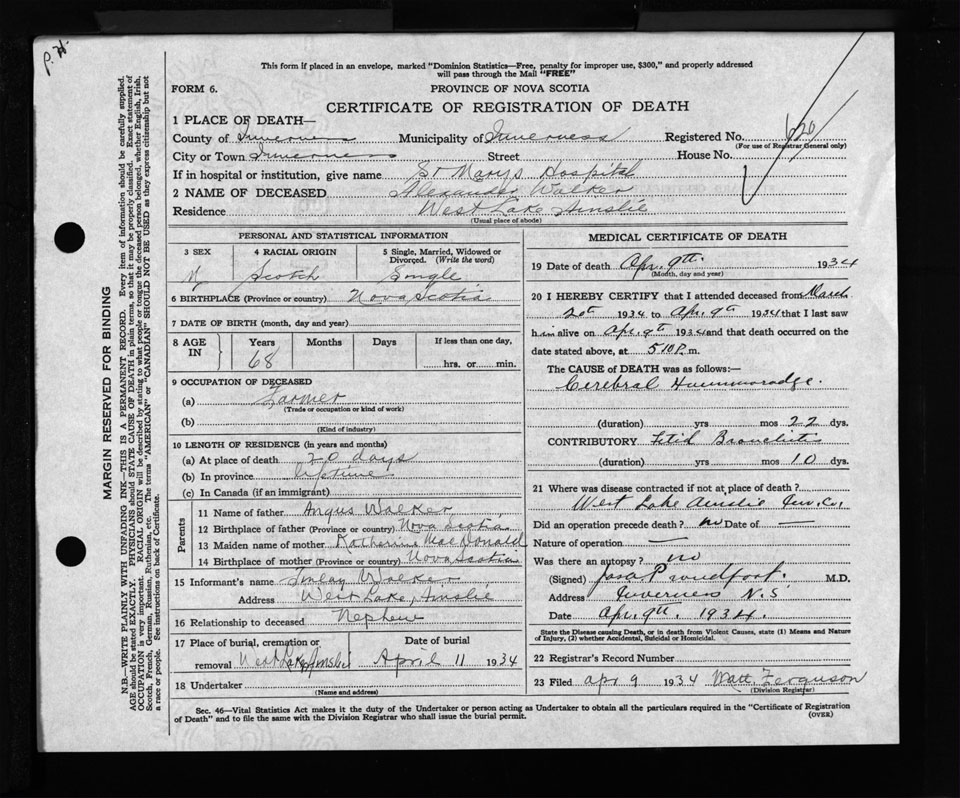 P. H.
This form if placed in an envelope, marked "Dominion Statistics—Free, penalty for improper use, $300," and properly addressed
will pass through the Mail "FREE"
FORM 6.
PROVINCE OF NOVA SCOTIA
CERTIFICATE OF REGISTRATION OF DEATH
1 PLACE OF DEATH—
County of Inverness Municipality of Inverness Registered No. 620
(For use of Registrar General only)
City or Town Inverness Street House No.
If in hospital or institution, give name St Marys Hospital
2 NAME OF DECEASED Alexander Walker
Residence West Lake Ainslie
(Usual place of abode)
PERSONAL AND STATISTICAL INFORMATION
3 SEX 4 RACIAL ORIGIN 5 Single, Married, Widowed or
Divorced. (Write the word)
M Scotch Single
6 BIRTHPLACE (Province or country) Nova Scotia
7 DATE OF BIRTH (month, day and year)
8 AGE IN Years Months Days If less than one day,
68 hrs. or min.
9 OCCUPATION OF DECEASED
(a) Farmer
(Trade or occupation or kind of work)
(b)
(Kind of industry)
10 LENGTH OF RESIDENCE (in years and months)
(a) At place of death 20 days
(b) In province lifetime
(c) In Canada (if an immigrant)
Parents
11 Name of father Angus Walker
12 Birthplace of father (Province or country) Nova Scotia
13 Maiden name of mother Katherine MacDonald
14 Birthplace of mother (Province or country) Nova Scotia
15 Informant's name Finlay Walker
Address West Lake, Ainslie
16 Relationship to deceased Nephew
17 Place of burial, cremation or Date of burial
removal West Lake Ainslie April 11 1934
18 Undertaker
(Name and address)
MEDICAL CERTIFICATE OF DEATH
19 Date of death Apr. 9th. 1934
(Month, day and year)
20 I HEREBY CERTIFY that I attended deceased from March
20th 1934 to Apr. 9th 1934 that I last saw
him alive on Apr. 9th 1934 and that death occurred on the
date stated above, at 5 10 P. m.
The CAUSE of DEATH was as follows:—
Cerebral Haemmoradge.
(duration) yrs mos 22 dys.
CONTRIBUTORY Fetid Bronchitis
(duration) yrs mos 10 dys.
21 Where was disease contracted if not at place of death?
West Lake Ainslie Inv. Co.
Did an operation precede death? no Date of —
Nature of operation —
Was there an autopsy? no
(Signed) M.D.
Address Inverness N.S.
Date Apr. 9th. 1934.
State the Disease causing Death, or in death from Violent Causes, state (1) Means and Nature
of Injury, (2) whether Accidental, Suicidal or Homicidal.
22 Registrar's Record Number
23 Filed apr 9 1934 Matt Ferguson
(Division Registrar)
Sec. 46—Vital Statistics Act makes it the duty of the Undertaker or person acting as Undertaker to obtain all the particulars required in the "Certificate of Registration
of Death" and to file the same with the Division Registrar who shall issue the burial permit.
(OVER)
MARGIN RESERVED FOR BINDING
N.B.—WRITE PLAINLY WITH UNFADING INK—THIS IS A PERMANENT RECORD. Every item of information should be carefully supplied.
AGE should be stated EXACTLY. PHYSICIANS should STATE CAUSE OF DEATH in plain terms, so that it may be properly classified. Exact statement of
OCCUPATION is very important. RACIAL ORIGIN will be described by stating to what people or tongue the deceased person belonged, whether English, Irish,
Scotch, French, German, Russian, Ruthenian, etc. The terms "AMERICAN" or "CANADIAN" SHOULD NOT BE USED as they express citizenship but not
a race or people. See instructions on back of Certificate.